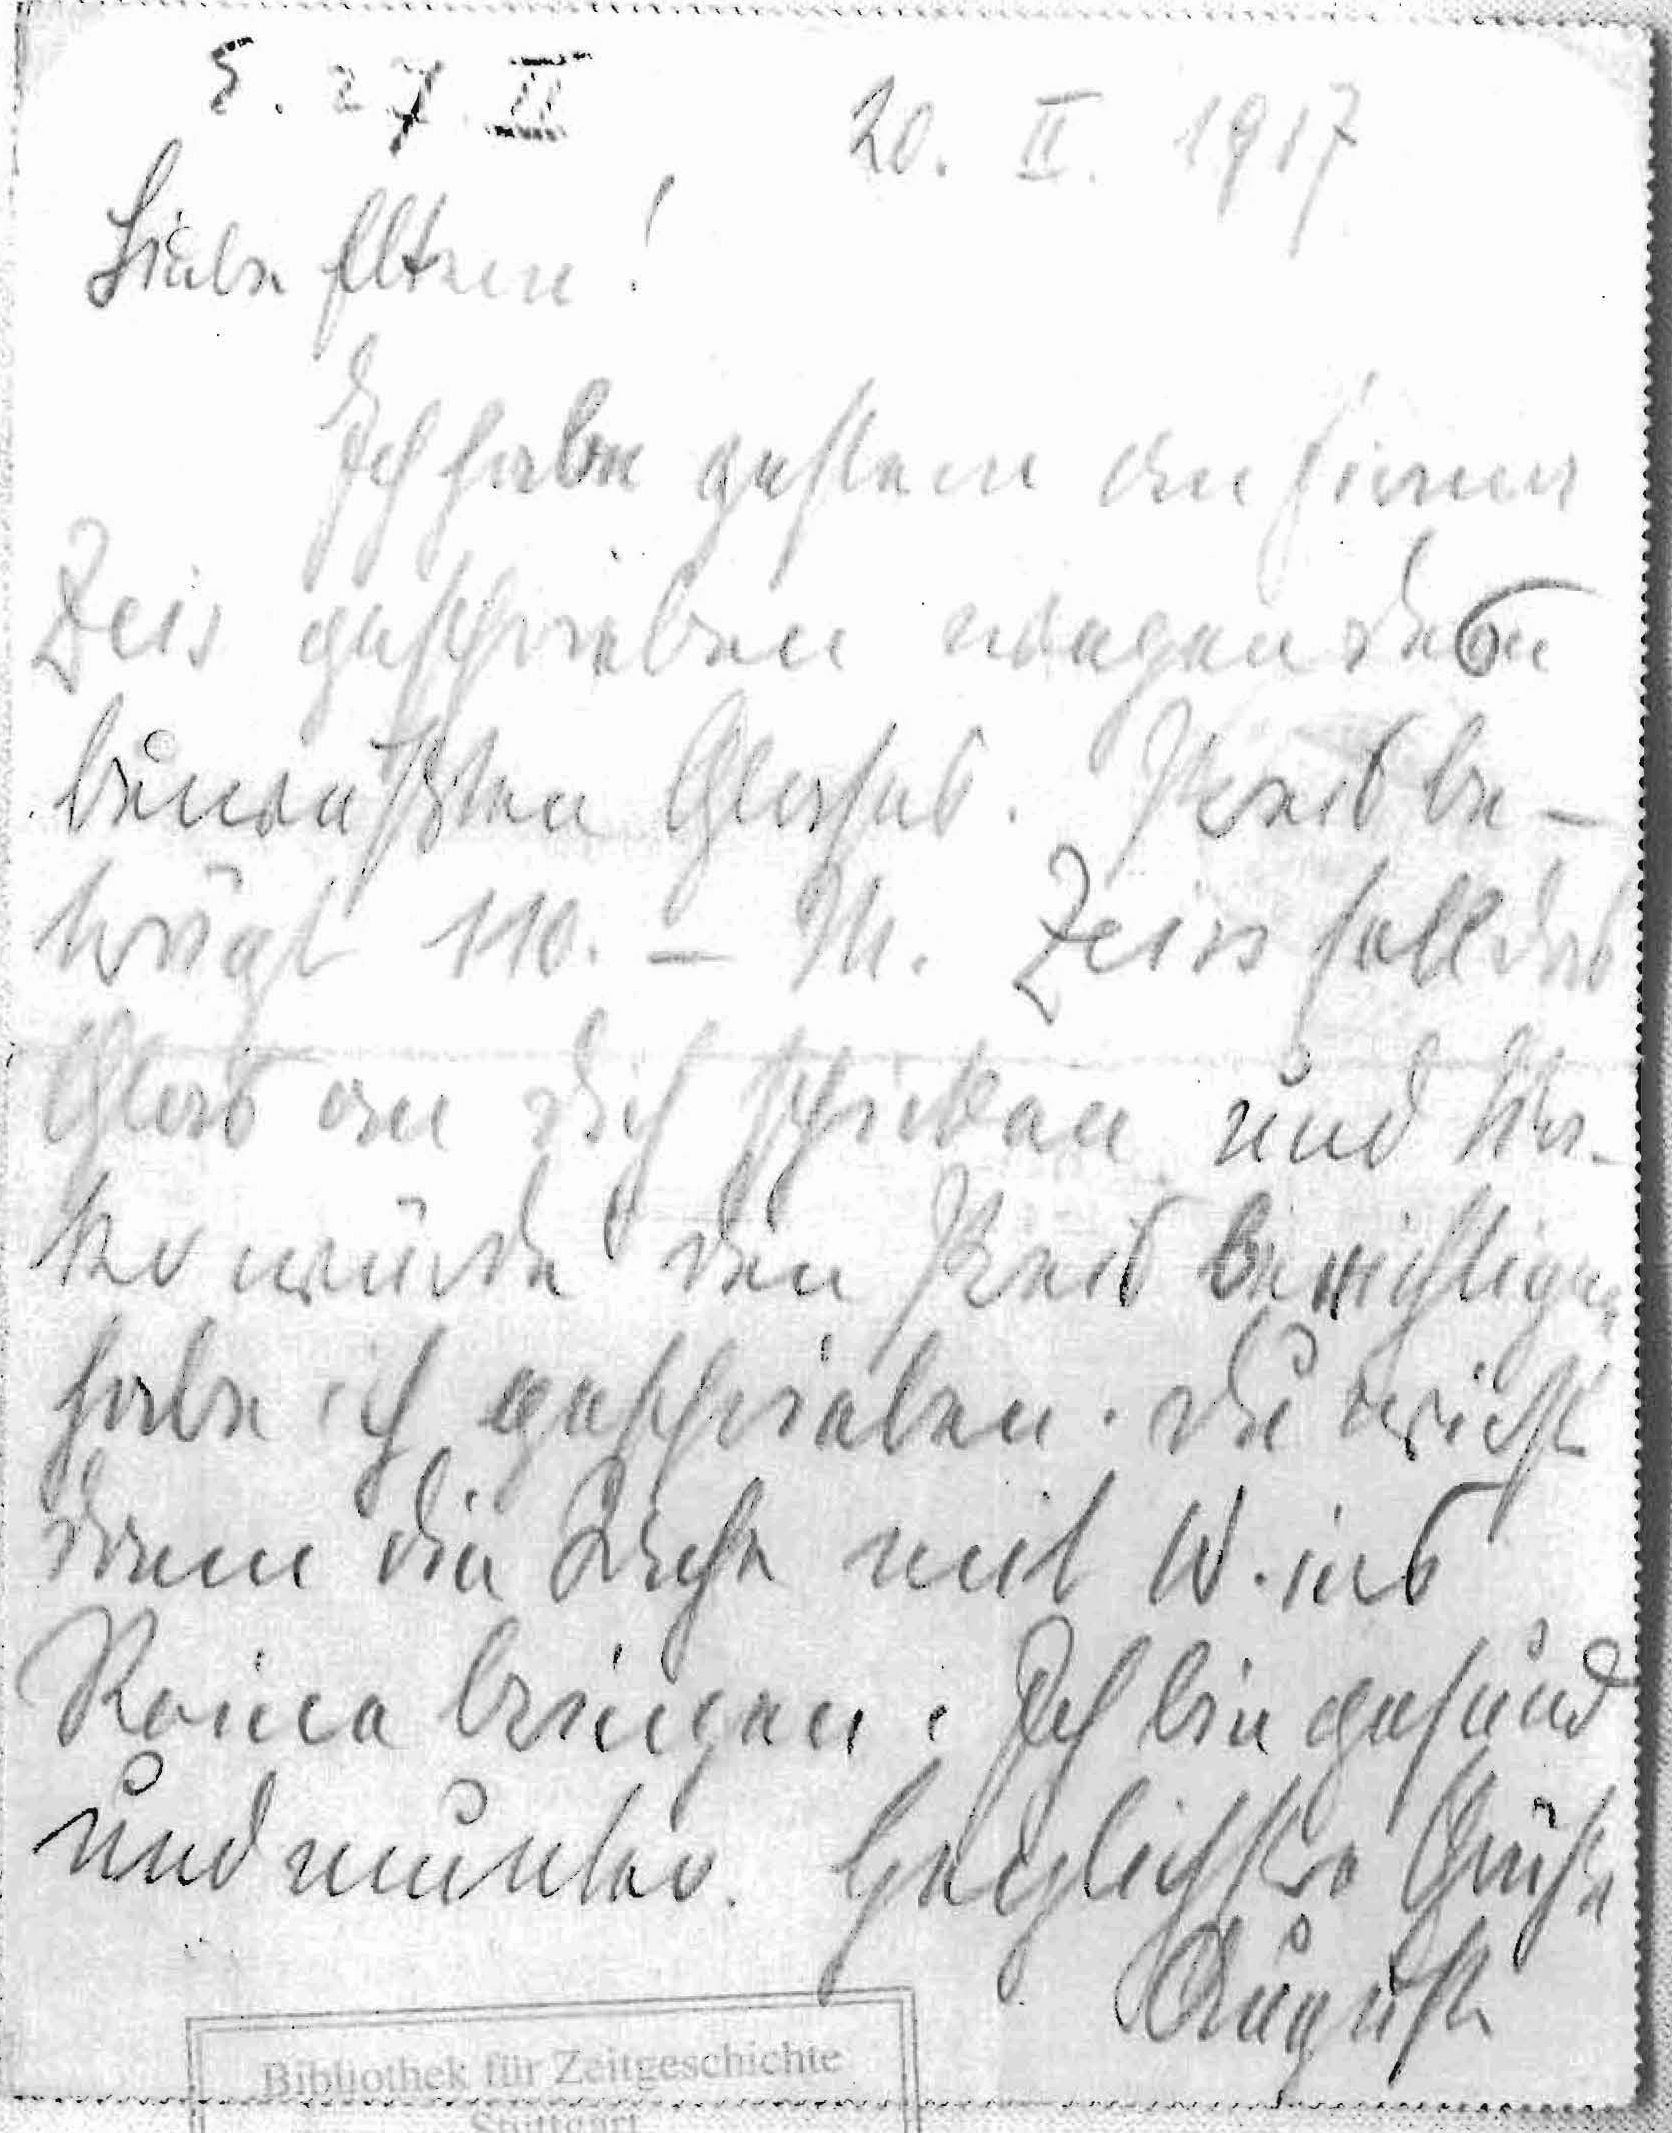 E. 27. II
20. II. 1917
Liebe Eltern!
Ich habe gestern an Firma
Zeis geschrieben wegen des
bewußten Glases. Preis be-
trägt 110.– M. Zeiss soll das
Glas an Dich schicken und
würde den Preis
habe ich geschrieben. Du wirst
dann die Sache mit W. ins
Reine bringen. Ich bin gesund
und munter. Herzlichste Grüße
August
Bibliothek für Zeitgeschichte
Stuttgart